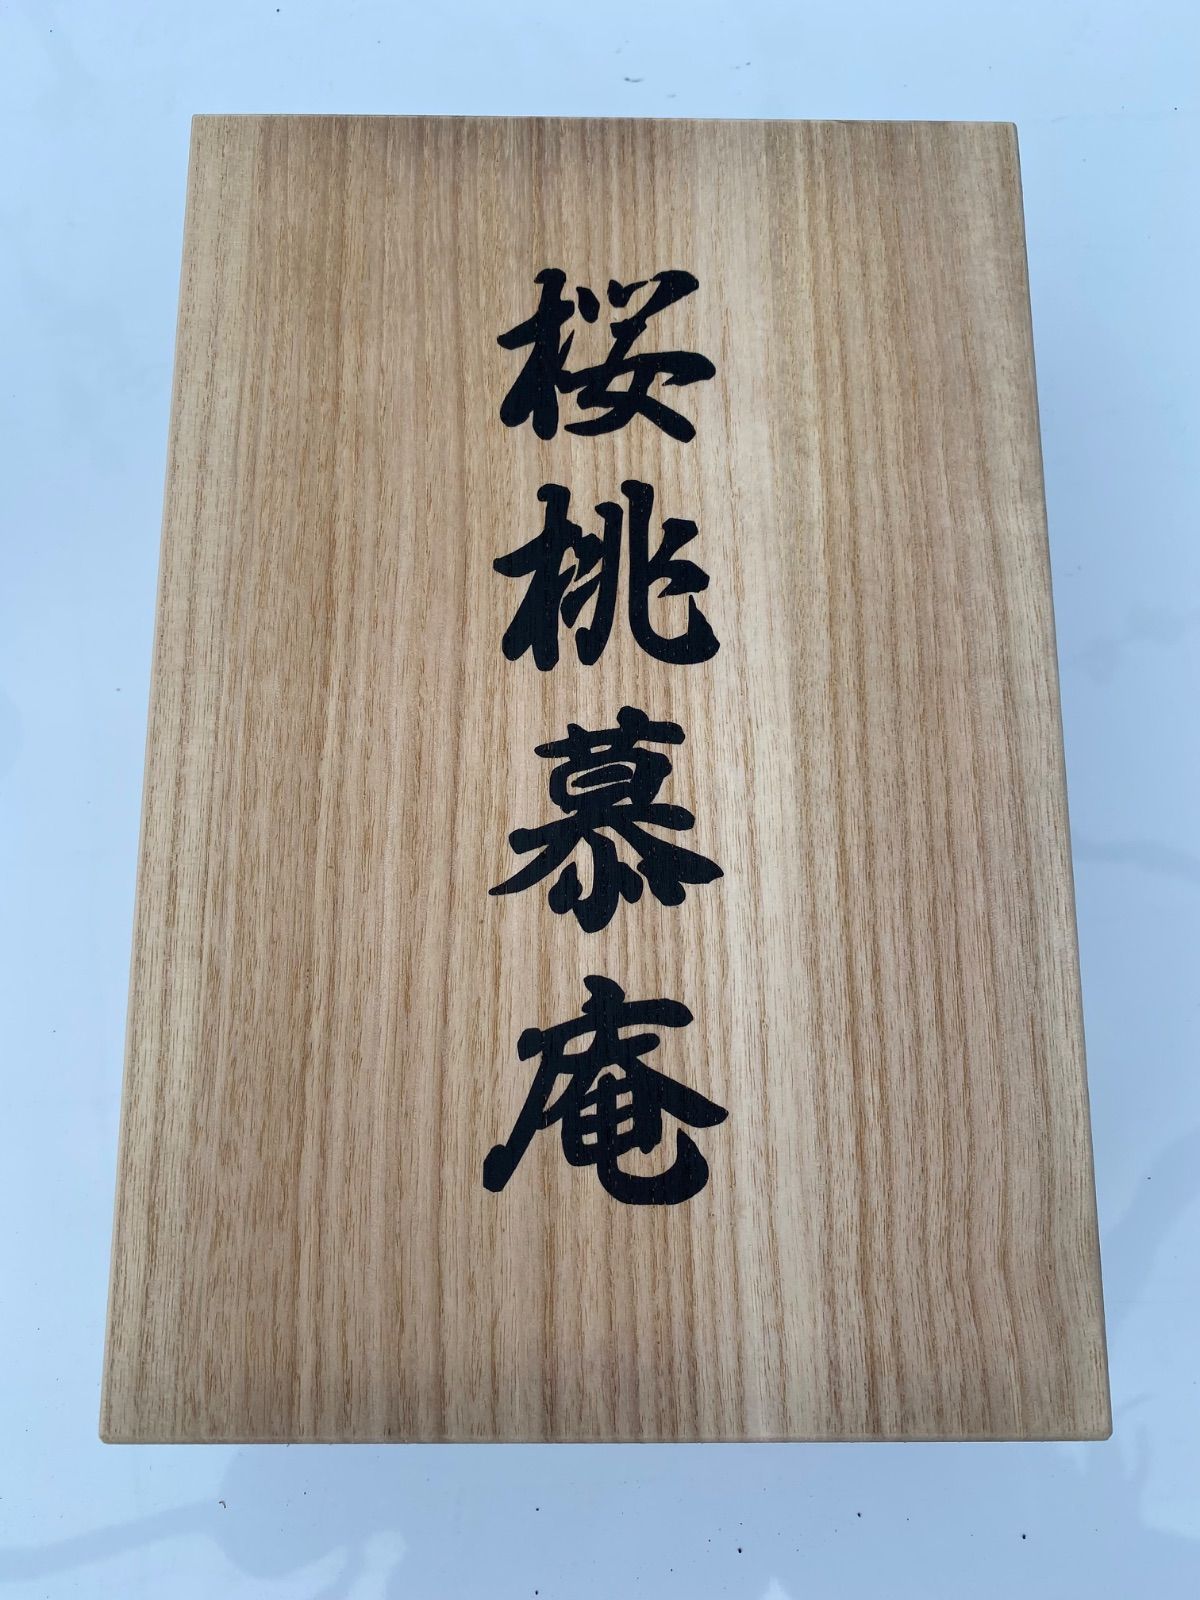 桜桃慕庵